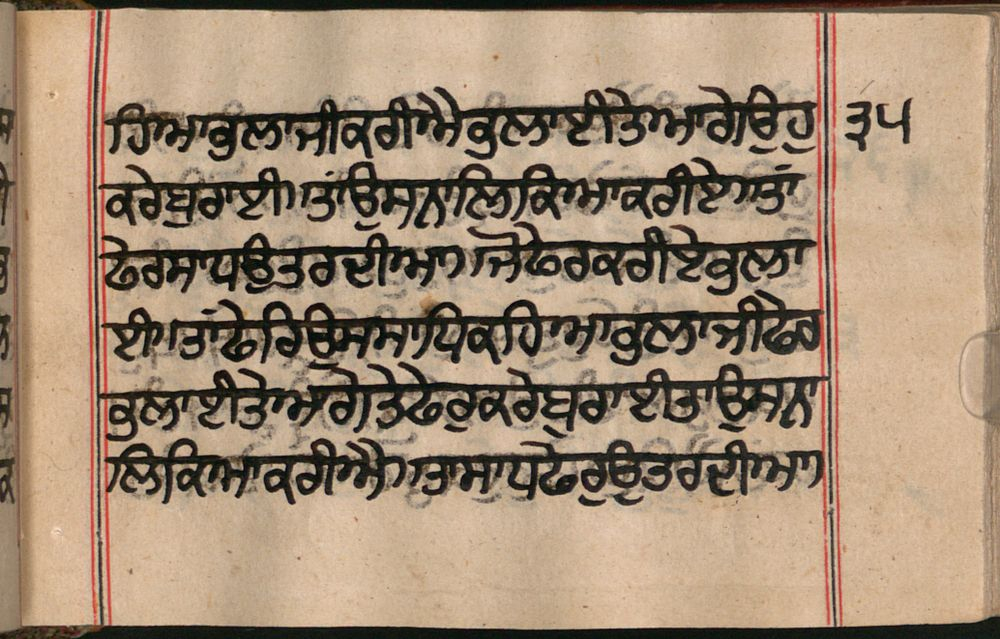 ਹਿਆ ਭੁਲਾ ਜੀ ਕਰੀਐ ਭੁਲਾਈ ਤੇ ਆਗੇ ਉਹੁ ੩੫
ਕਰੇ ਬੁਰਾਈ। ਤਾਂ ਉਸ ਨਾਲਿ ਕਿਆ ਕਰੀਏ। ਤਾਂ
ਫੇਰ ਸਾਧ ਉਤਰ ਦੀਆ। ਜੋ ਫੇਰ ਕਰੀਏ ਭੁਲਾ
ਈ। ਤਾਂ ਫੇਰਿ ਉਸ ਸਾਧਿ ਕਹਿਆ ਭੁਲਾ ਜੀ ਫੇਰ
ਭੁਲਾਈ ਤੇ ਆਗੇ ਤੇ ਫੇਰੁ ਕਰੇ ਬੁਰਾਈ ਤਾ ਉਸ ਨਾ
ਲਿ ਕਿਆ ਕਰੀਐ। ਤਾ ਸਾਧ ਫੇਰੁ ਉਤਰ ਦੀਆ।